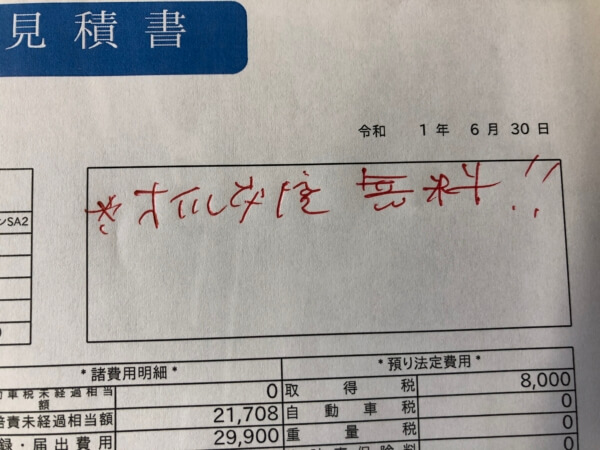 見積書
令和 1年 6月30日
ンSA2
*オイル交換 無料!!
*諸費用明細*
*預り法定費用*
動車税未経過相当額
0
取得税
8,000
賠責未経過相当額
21,708
自動車税
0
録・届出費用
29,900
重量税
0
0